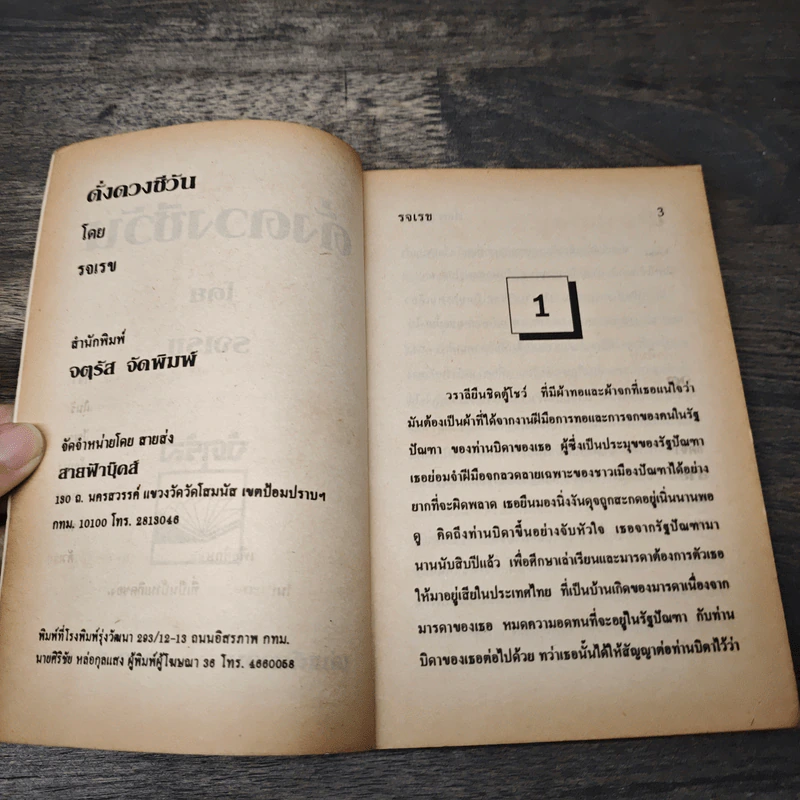 ดั่งดวงชีวัน
โดย
รจเรข
สำนักพิมพ์
จตุรัส จัดพิมพ์
จัดจำหน่ายโดย สายส่ง
สายฟ้าบุ๊คส์
130 ถ. นครสวรรค์ แขวงวัดโสมนัส เขตป้อมปราบฯ
กทม. 10100 โทร. 2813046
พิมพ์ที่โรงพิมพ์รุ่งวัฒนา 293/12-13 ถนนอิสรภาพ กทม.
นายศิริชัย หล่อกุลแสง ผู้พิมพ์ผู้โฆษณา 36 โทร. 4660058
รจเรข 3
1
วราลียืนชิดตู้โชว์ ที่มีผ้าทอและผ้าจกที่เธอแน่ใจว่า
มันต้องเป็นผ้าที่ได้จากงานฝีมือการทอและการจกของคนในรัฐ
ปัณฑา ของท่านบิดาของเธอ ผู้ซึ่งเป็นประมุขของรัฐปัณฑา
เธอย่อมจำฝีมือจกลวดลายเฉพาะของชาวเมืองปัณฑาได้อย่าง
ยากที่จะผิดพลาด เธอยืนมองนิ่งงันดุจถูกสะกดอยู่เนิ่นนานพอ
ดู คิดถึงท่านบิดาขึ้นอย่างจับหัวใจ เธอจากรัฐปัณฑามา
นานนับสิบปีแล้ว เพื่อศึกษาเล่าเรียนและมารดาต้องการตัวเธอ
ให้มาอยู่เสียในประเทศไทย ที่เป็นบ้านเกิดของมารดาเนื่องจาก
มารดาของเธอ หมดความอดทนที่จะอยู่ในรัฐปัณฑา กับท่าน
บิดาของเธอต่อไปด้วย ทว่าเธอนั้นได้ให้สัญญาต่อท่านบิดาไว้ว่า